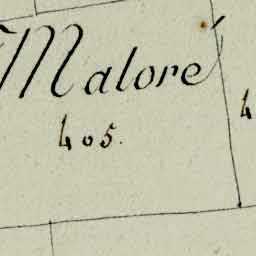 Maloré
405.
4